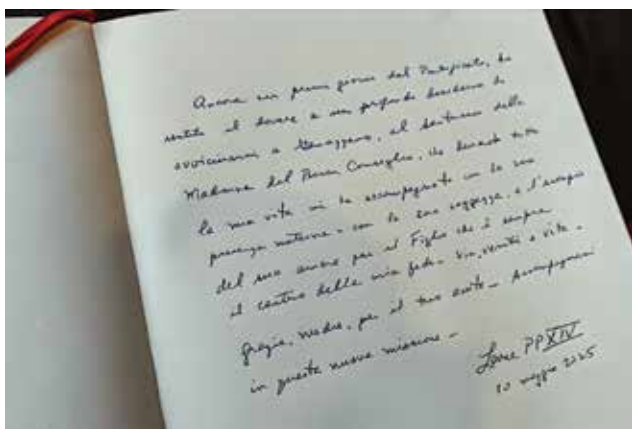 Ancora nei primi giorni del Pontificato, ho
sentito il dovere e un profondo desiderio di
avvicinarmi a Genazzano, al Santuario della
Madonna del Buon Consiglio, che durante tutta
la mia vita mi ha accompagnato con la sua
presenza materna, con la sua saggezza, e l'esempio
del suo amore per il Figlio che è sempre
il centro della mia fede - via, verità e vita -
Grazie, Madre, per il tuo aiuto - Accompagnami
in questa nuova missione -
Leone PP XIV
10 maggio 2025